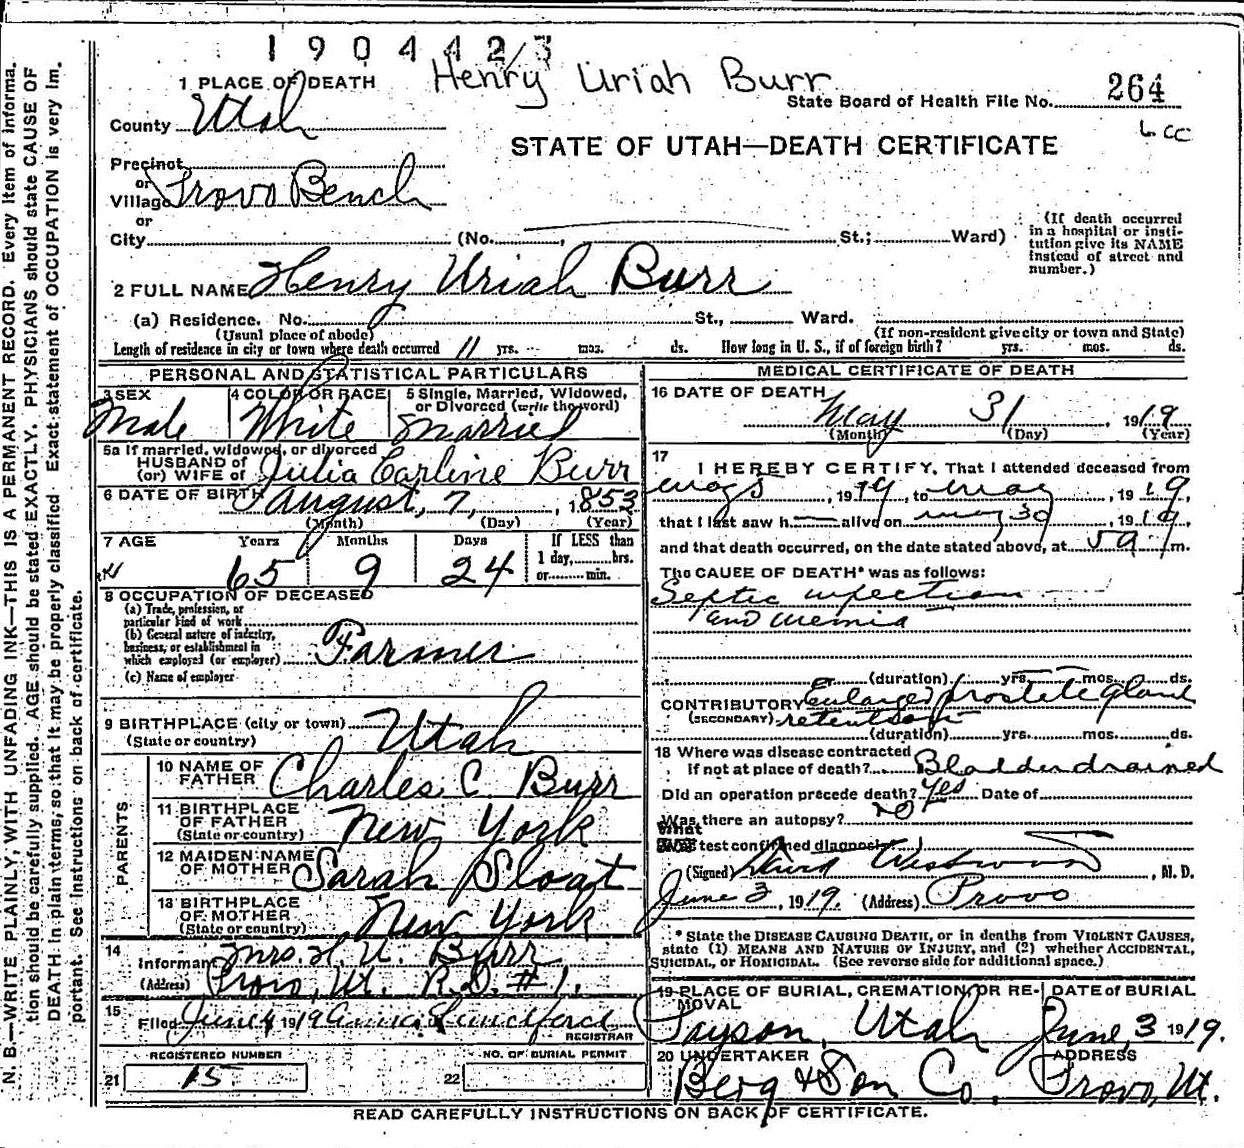 1904423
1 PLACE OF DEATH Henry Uriah Burr
State Board of Health File No. 264
County Utah
6 cc
STATE OF UTAH—DEATH CERTIFICATE
Precinct
or
Village Provo Bench
or
City (No. , St.; Ward)
(If death occurred
in a hospital or insti-
tution give its NAME
instead of street and
number.)
2 FULL NAME Henry Uriah Burr
(a) Residence. No. St., Ward.
(Usual place of abode) (If non-resident give city or town and State)
Length of residence in city or town where death occurred 11 yrs. mos. ds. How long in U. S., if of foreign birth? yrs. mos. ds.
PERSONAL AND STATISTICAL PARTICULARS
3 SEX 4 COLOR OR RACE 5 Single, Married, Widowed,
or Divorced (write the word)
Male White Married
5a If married, widowed, or divorced
HUSBAND of
(or) WIFE of Julia Carline Burr
6 DATE OF BIRTH August, 7, , 1853
(Month) (Day) (Year)
7 AGE Years Months Days If LESS than
1 day, hrs.
or min.
65 9 24
8 OCCUPATION OF DECEASED
(a) Trade, profession, or
particular kind of work
(b) General nature of industry,
business, or establishment in
which employed (or employer) Farmer
(c) Name of employer
9 BIRTHPLACE (city or town)
(State or country) Utah
PARENTS
10 NAME OF
FATHER Charles C Burr
11 BIRTHPLACE
OF FATHER
(State or country) New York
12 MAIDEN NAME
OF MOTHER Sarah Sloat
13 BIRTHPLACE
OF MOTHER
(State or country) New York
14
Informant Mrs. H. U. Burr
(Address) Provo, Ut. R.D. #1.
15
Filed June 4 1919 Anna
REGISTRAR
REGISTERED NUMBER NO. OF BURIAL PERMIT
21 15 22
MEDICAL CERTIFICATE OF DEATH
16 DATE OF DEATH
May 31 , 1919
(Month) (Day) (Year)
17
I HEREBY CERTIFY, That I attended deceased from
May 5 , 1919 , to May , 1919,
that I last saw h alive on May 30 , 1919,
and that death occurred, on the date stated above, at 5 9 m.
The CAUSE OF DEATH* was as follows:
Septic infection
and uremia
(duration) yrs. mos. ds.
CONTRIBUTORY Enlarged prostete gland
(SECONDARY) retention
(duration) yrs. mos. ds.
18 Where was disease contracted
if not at place of death? Bladder drained
Did an operation precede death? Yes Date of
Was there an autopsy? no
What
test confirmed diagnosis
(Signed) David Westwood , M. D.
June 3, 1919. (Address) Provo
* State the DISEASE CAUSING DEATH, or in deaths from VIOLENT CAUSES,
state (1) MEANS AND NATURE OF INJURY, and (2) whether ACCIDENTAL,
SUICIDAL, or HOMICIDAL. (See reverse side for additional space.)
19 PLACE OF BURIAL, CREMATION, OR RE-
MOVAL DATE of BURIAL
Payson, Utah June 3 1919.
20 UNDERTAKER ADDRESS
Berg & Son Co. Provo, Ut.
READ CAREFULLY INSTRUCTIONS ON BACK OF CERTIFICATE.
N. B.—WRITE PLAINLY, WITH UNFADING INK—THIS IS A PERMANENT RECORD. Every item of informa-
tion should be carefully supplied. AGE should be stated EXACTLY. PHYSICIANS should state CAUSE OF
DEATH in plain terms, so that it may be properly classified. Exact statement of OCCUPATION is very im-
portant. See instructions on back of certificate.